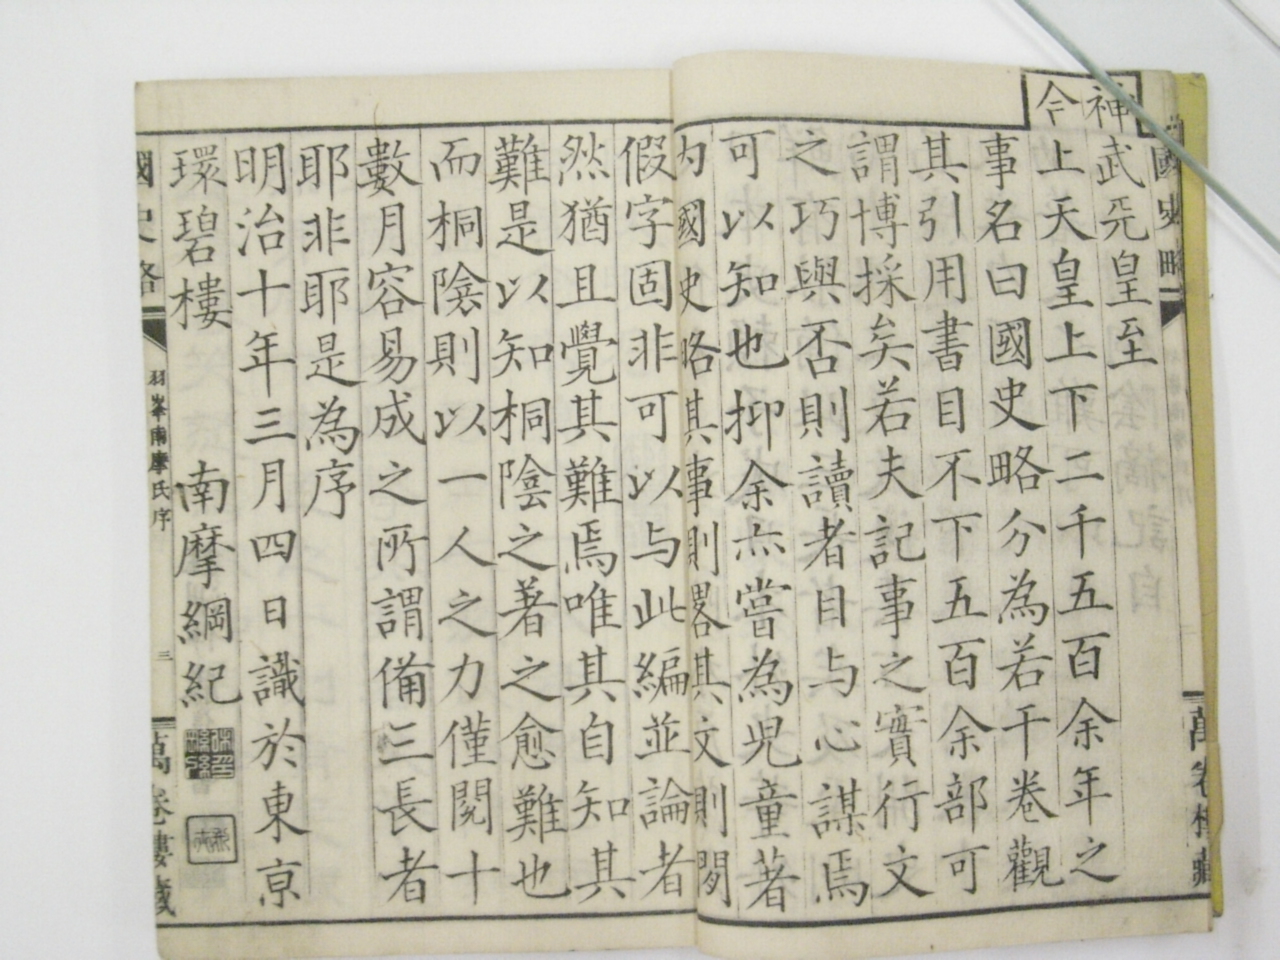 神武元皇至
今上天皇上下二千五百余年之
事名曰國史略分為若干卷觀
其引用書目不下五百余部可
謂博採矣若夫記事之實行文
之巧與否則讀者目与心謀焉
可以知也抑余亦嘗為児童著
内國史略其事則畧其文則間
假字固非可以与此編並論者
然猶且覺其難焉唯其自知其
難是以知桐陰之著之愈難也
而桐陰則以一人之力僅閱十
數月容易成之所謂備三長者
耶非耶是為序
明治十年三月四日識於東京
環碧樓 南摩綱紀
國史略 羽峯南摩氏序 三 萬卷樓藏